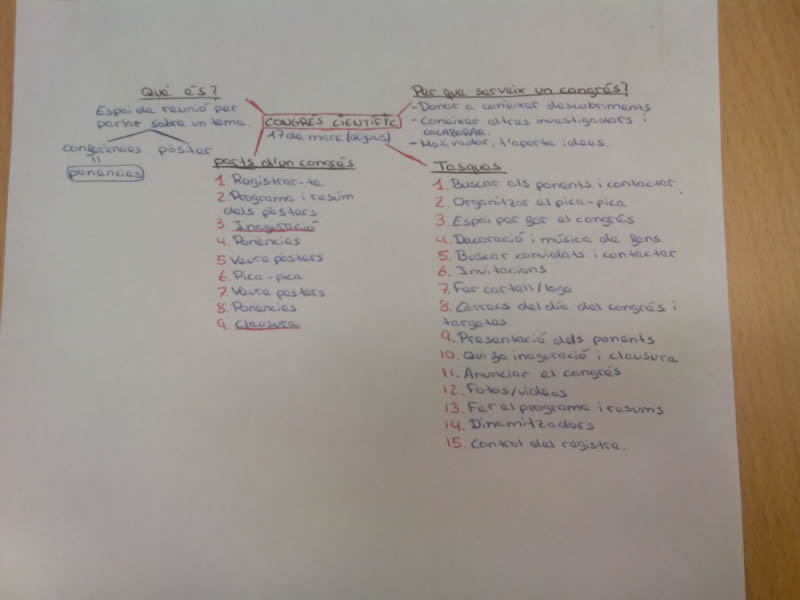 Què és?
Espai de reunió per
parlar sobre un tema.
conferències pòster
=
ponencies
CONGRÉS CIENTIFIC
17 de març (dijous)
Per que serveix un congrés?
- Donar a conèixer descobriments
- Conèixer altres investigadors i
COLABORAR.
- Motivador, t'aporta idees.
parts d'un congrés
1. Registrar-te
2. Programa i resum
dels pòsters
3. Inaguració
4. Ponencies
5 Veure pòsters
6. Pica-pica
7. Veure pòsters
8. Ponencies
9. Clausura
Tasques
1. Buscar als ponents i contactar.
2. Organitzar el pica-pica
3. Espai per fer el congrés
4. Decoració i música de fons
5. Buscar convidats i contactar
6. Invitacions
7. Fer cartell/logo
8. Càrrecs del dia del congrés i
targetes.
9. Presentació dels ponents
10. Qui fa inaguració i clausura
11. Anunciar el congrés
12. Fotos/videos
13. Fer el programa i resums
14. Dinamitzadors
15. Control del registre.